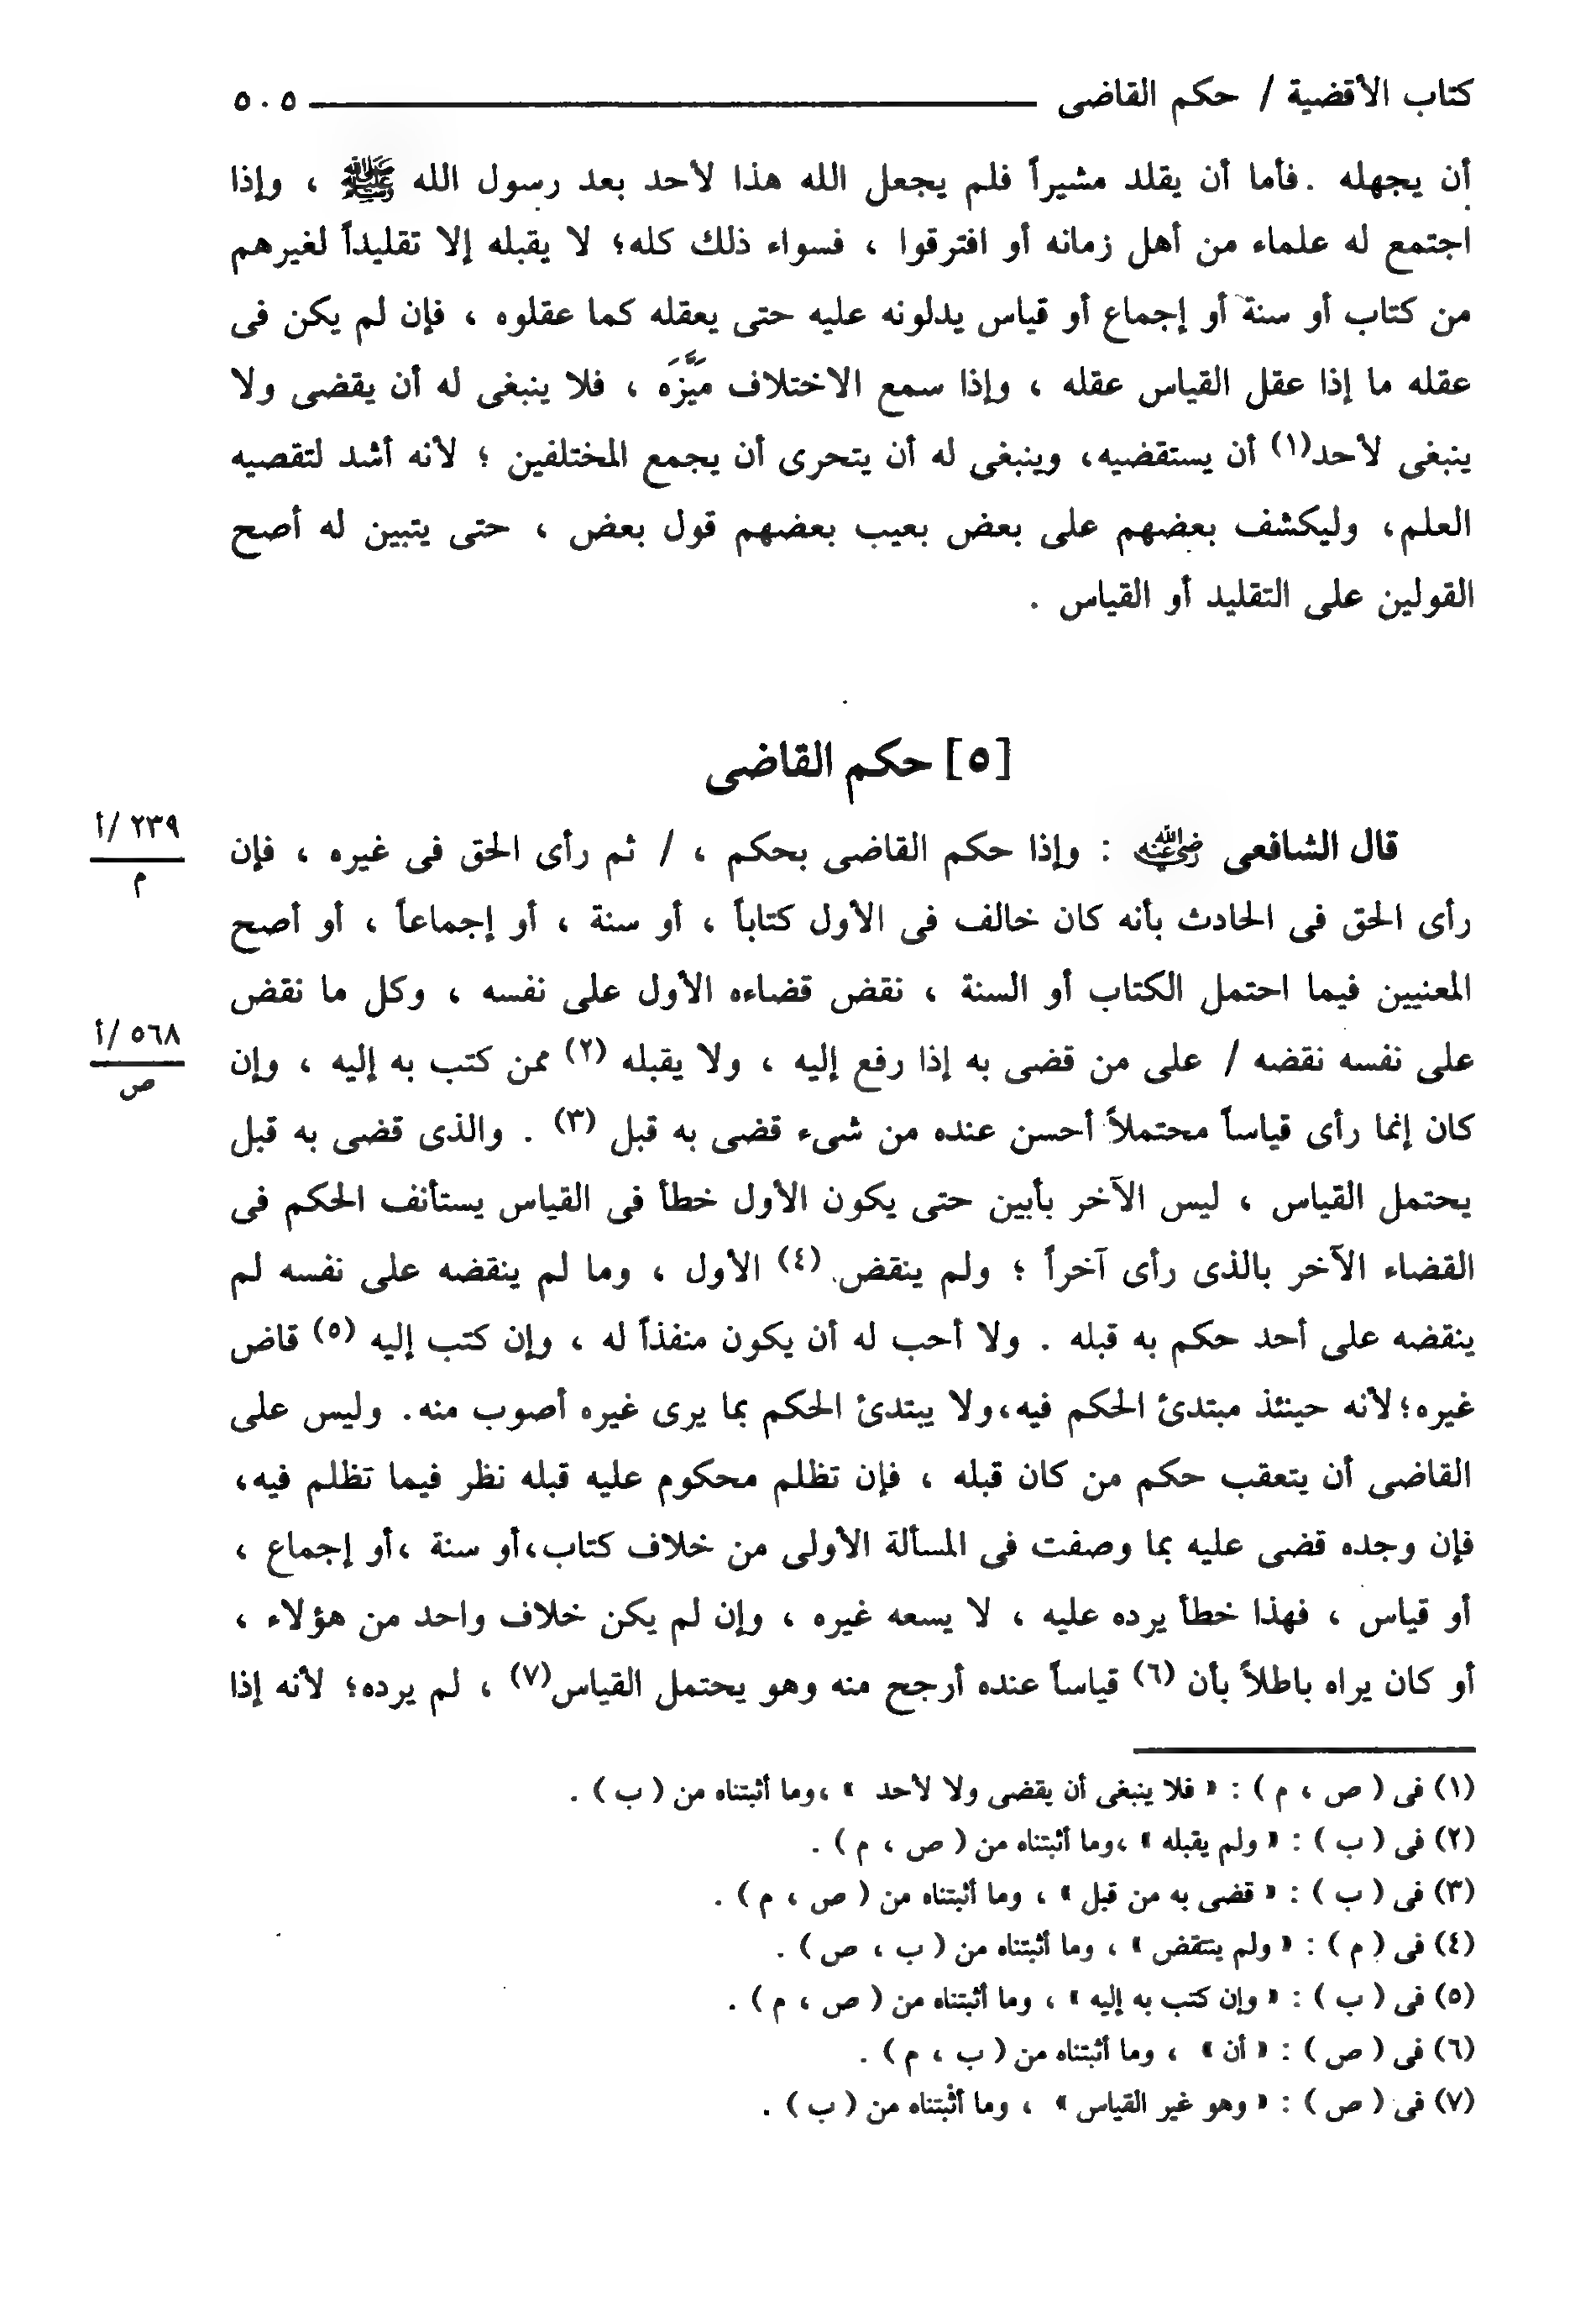 كتاب الأقضية / حكم القاضى ٥٠٥
أن يجهله . فأما أن يقلد مشيراً فلم يجعل الله هذا لأحد بعد رسول الله ﷺ ، وإذا
اجتمع له علماء من أهل زمانه أو افترقوا ، فسواء ذلك كله؛ لا يقبله إلا تقليداً لغيرهم
من كتاب أو سنة أو إجماع أو قياس يدلونه عليه حتى يعقله كما عقلوه ، فإن لم يكن فى
عقله ما إذا عقل القياس عقله ، وإذا سمع الاختلاف مَيَّزَه ، فلا ينبغى له أن يقضى ولا
ينبغى لأحد(١) أن يستقضيه، وينبغى له أن يتحرى أن يجمع المختلفين ؛ لأنه أشد لتقصيه
العلم، وليكشف بعضهم على بعض بعيب بعضهم قول بعض ، حتى يتبين له أصح
القولين على التقليد أو القياس .
[٥] حكم القاضى
قال الشافعى رضي الله عنه : وإذا حكم القاضى بحكم ، / ثم رأى الحق فى غيره ، فإن
٢٣٩ /أ
م
رأى الحق فى الحادث بأنه كان خالف فى الأول كتاباً ، أو سنة ، أو إجماعاً ، أو أصح
المعنيين فيما احتمل الكتاب أو السنة ، نقض قضاءه الأول على نفسه ، وكل ما نقض
على نفسه نقضه / على من قضى به إذا رفع إليه ، ولا يقبله (٢) ممن كتب به إليه ، وإن
٥٦٨ /أ
ص
كان إنما رأى قياساً محتملاً أحسن عنده من شىء قضى به قبل (٣) . والذى قضى به قبل
يحتمل القياس ، ليس الآخر بأبين حتى يكون الأول خطأ فى القياس يستأنف الحكم فى
القضاء الآخر بالذى رأى آخراً ؛ ولم ينقض (٤) الأول ، وما لم ينقضه على نفسه لم
ينقضه على أحد حكم به قبله . ولا أحب له أن يكون منفذاً له ، وإن كتب إليه (٥) قاض
غيره؛لأنه حينئذ مبتدئ الحكم فيه،ولا يبتدئ الحكم بما يرى غيره أصوب منه. وليس على
القاضى أن يتعقب حكم من كان قبله ، فإن تظلم محكوم عليه قبله نظر فيما تظلم فيه،
فإن وجده قضى عليه بما وصفت فى المسألة الأولى من خلاف كتاب،أو سنة ،أو إجماع ،
أو قياس ، فهذا خطأ يرده عليه ، لا يسعه غيره ، وإن لم يكن خلاف واحد من هؤلاء ،
أو كان يراه باطلاً بأن (٦) قياساً عنده أرجح منه وهو يحتمل القياس(٧) ، لم يرده؛ لأنه إذا
(١) فى ( ص ، م ) : « فلا ينبغى أن يقضى ولا لأحد » ،وما أثبتناه من ( ب ) .
(٢) فى ( ب ) : « ولم يقبله » ،وما أثبتناه من ( ص ، م ) .
(٣) فى ( ب ) : « قضى به من قبل » ، وما أثبتناه من ( ص ، م ) .
(٤) فى ( م ) : « ولم ينتقض » ، وما أثبتناه من ( ب ، ص ) .
(٥) فى ( ب ) : « وإن كتب به إليه » ، وما أثبتناه من ( ص ، م ) .
(٦) فى ( ص ) : « أن » ، وما أثبتناه من ( ب ، م ) .
(٧) فى ( ص ) : « وهو غير القياس » ، وما أثبتناه من ( ب ) .